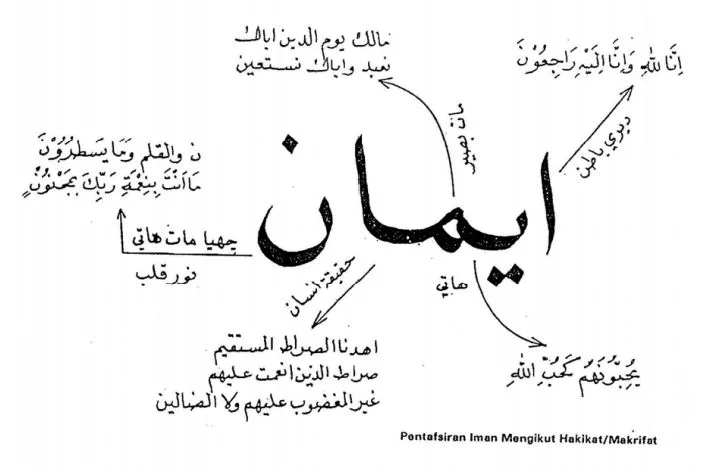 مالك يوم الدين اياك
نعبد واياك نستعين
اِنَّا لِلّٰهِ وَاِنَّا اِلَيْهِ رَاجِعُوْنَ
مات بصير
ديري باطن
ن والقلم وَمَا يَسطُرُوْنَ
مَا اَنْتَ بِنِعْمَةِ رَبِّكَ بِمَجْنُوْنٍ
ايمان
چهيا مات هاتي
نور قلب
حقيقة انسان
هاتي
اهدنا الصراط المستقيم
صراط الذين انعمت عليهم
غير المغضوب عليهم ولا الضالين
يُحِبُّوْنَهُمْ كَحُبِّ اللهِ
Pentafsiran Iman Mengikut Hakikat/Makrifat